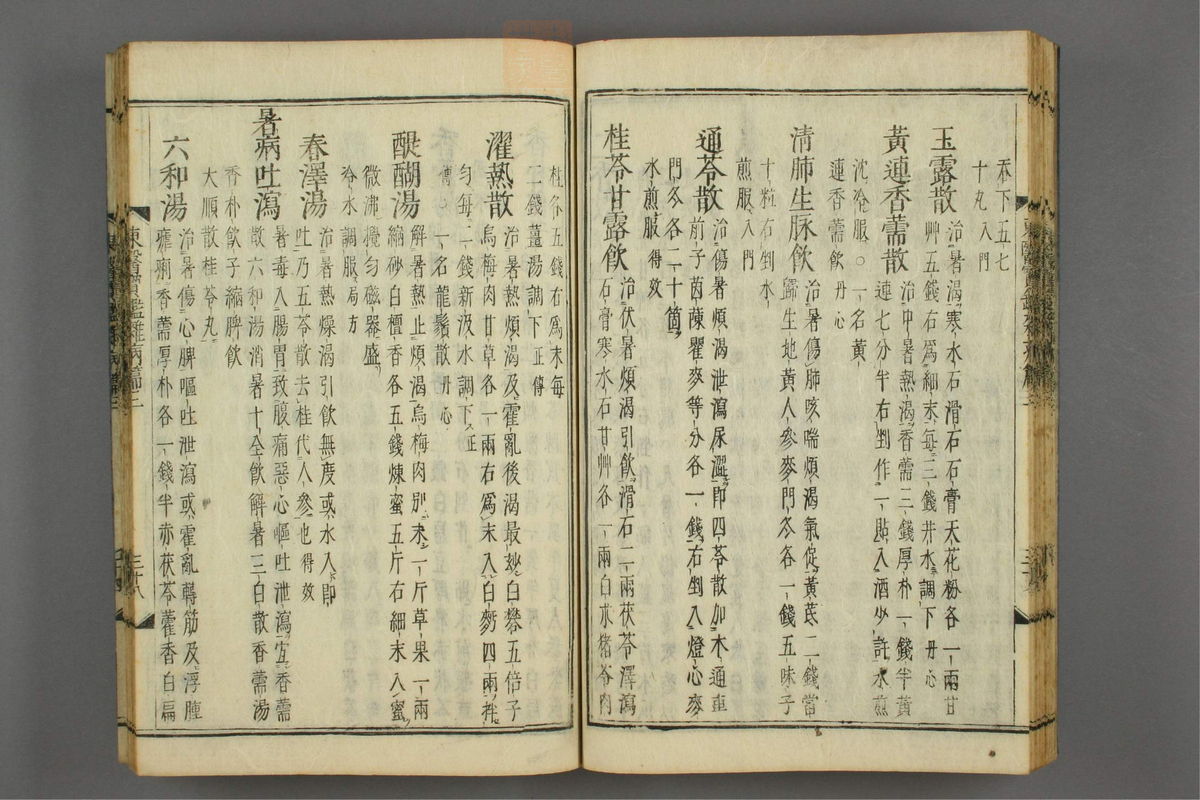 吞下五七
十丸入門
玉露散
治暑渴寒水石滑石石膏天花粉各一兩甘
艸五錢右爲細末每三錢井水調下丹心
黃連香薷散
治中暑熱渴香薷三錢厚朴一錢半黃
連七分半右剉作一貼入酒少許水煎
沈冷服○一名黃
連香薷飮丹心
淸肺生脉飮
治暑傷肺咳喘煩渴氣促黃芪二錢當
歸生地黃人參麥門冬各一錢五味子
十粒右剉水
煎服入門
通苓散
治傷暑煩渴泄瀉尿澁即四苓散加木通車
前子茵蔯瞿麥等分各一錢右剉入燈心麥
門冬各二十箇
水煎服得效
桂苓甘露飮
治伏暑煩渴引飮滑石二兩茯苓澤瀉
石膏寒水石甘艸各一兩白朮猪苓肉
桂各五錢右爲末每
二錢薑湯調下正傳
濯熱散
治暑熱煩渴及霍亂後渴最妙白礬五倍子
烏梅肉甘草各一兩右爲末入白麪四兩拌
勻每二錢新汲水調下正
傳○一名龍鬚散丹心
醍醐湯
解暑熱止煩渴烏梅肉別末一斤草果一兩
縮砂白檀香各五錢煉蜜五斤右細末入蜜
微沸攪勻磁器盛
冷水調服局方
春澤湯
治暑熱燥渴引飮無度或水入即
吐乃五苓散去桂代人參也得效
暑病吐瀉
暑毒入腸胃致腹痛惡心嘔吐泄瀉宜香薷
散六和湯消暑十全飮解暑三白散香薷湯
香朴飮子縮脾飮
大順散桂苓丸
六和湯
治暑傷心脾嘔吐泄瀉或霍亂轉筋及浮腫
瘧痢香薷厚朴各一錢半赤茯苓藿香白扁
東醫寶鑑雜病篇三
三十八